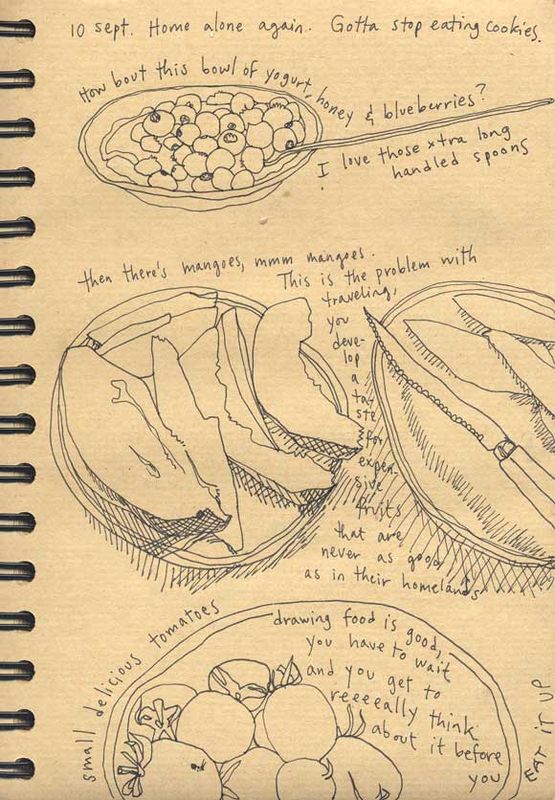 10 sept. Home alone again. Gotta stop eating cookies.
How bout this bowl of yogurt, honey & blueberries?
I love those xtra long
handled spoons
then there's mangoes, mmm mangoes.
This is the problem with
traveling,
you
deve-
lop
a
ta-
ste
for
expen-
sive
fruits
that are
never as good
as in their homelands
small delicious tomatoes
drawing food is good,
you have to wait
and you get to
reeeeally think
about it before
you
EAT IT UP